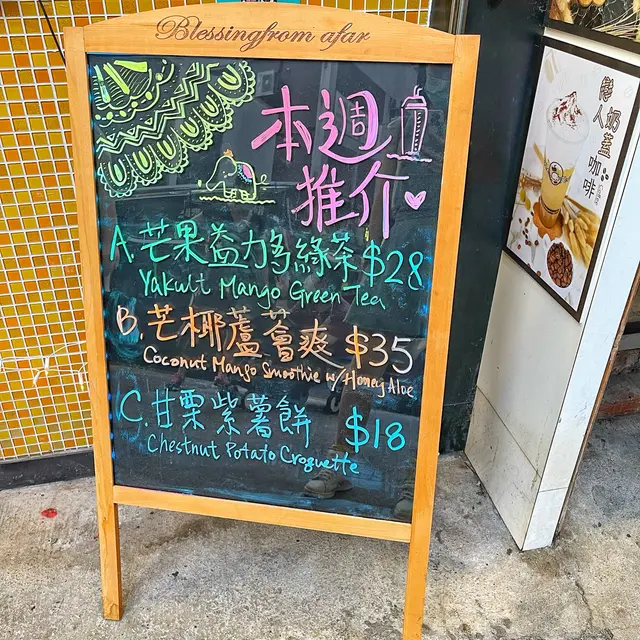 Blessingfrom afar
本週
推介
A.芒果益力多綠茶$28
Yakult Mango Green Tea
B.芒椰蘆薈爽 $35
Coconut Mango Smoothie w/ Honey Aloe
C.甘栗紫薯餅 $18
Chestnut Potato Croquette
戀人奶蓋咖啡